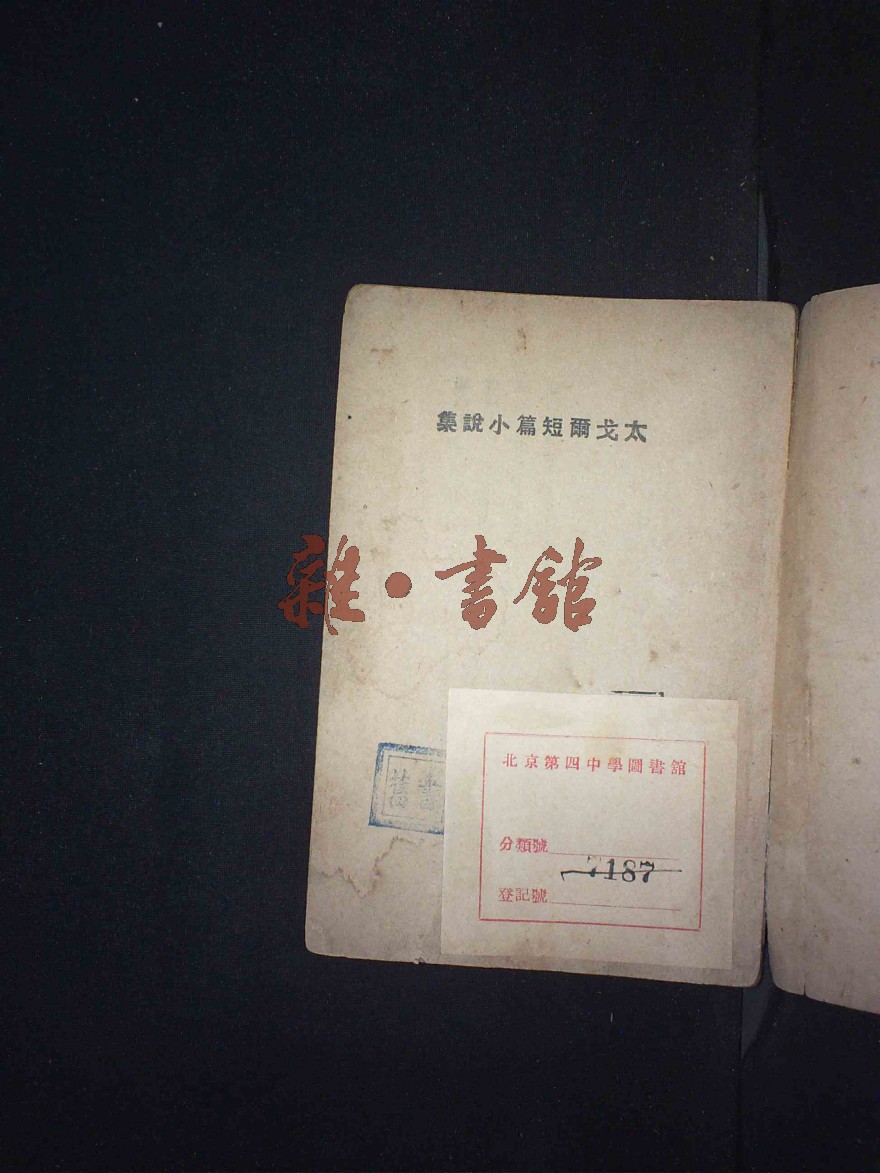 太戈爾短篇小說集
雜·書館
北京第四中學圖書館
分類號
7187
登記號